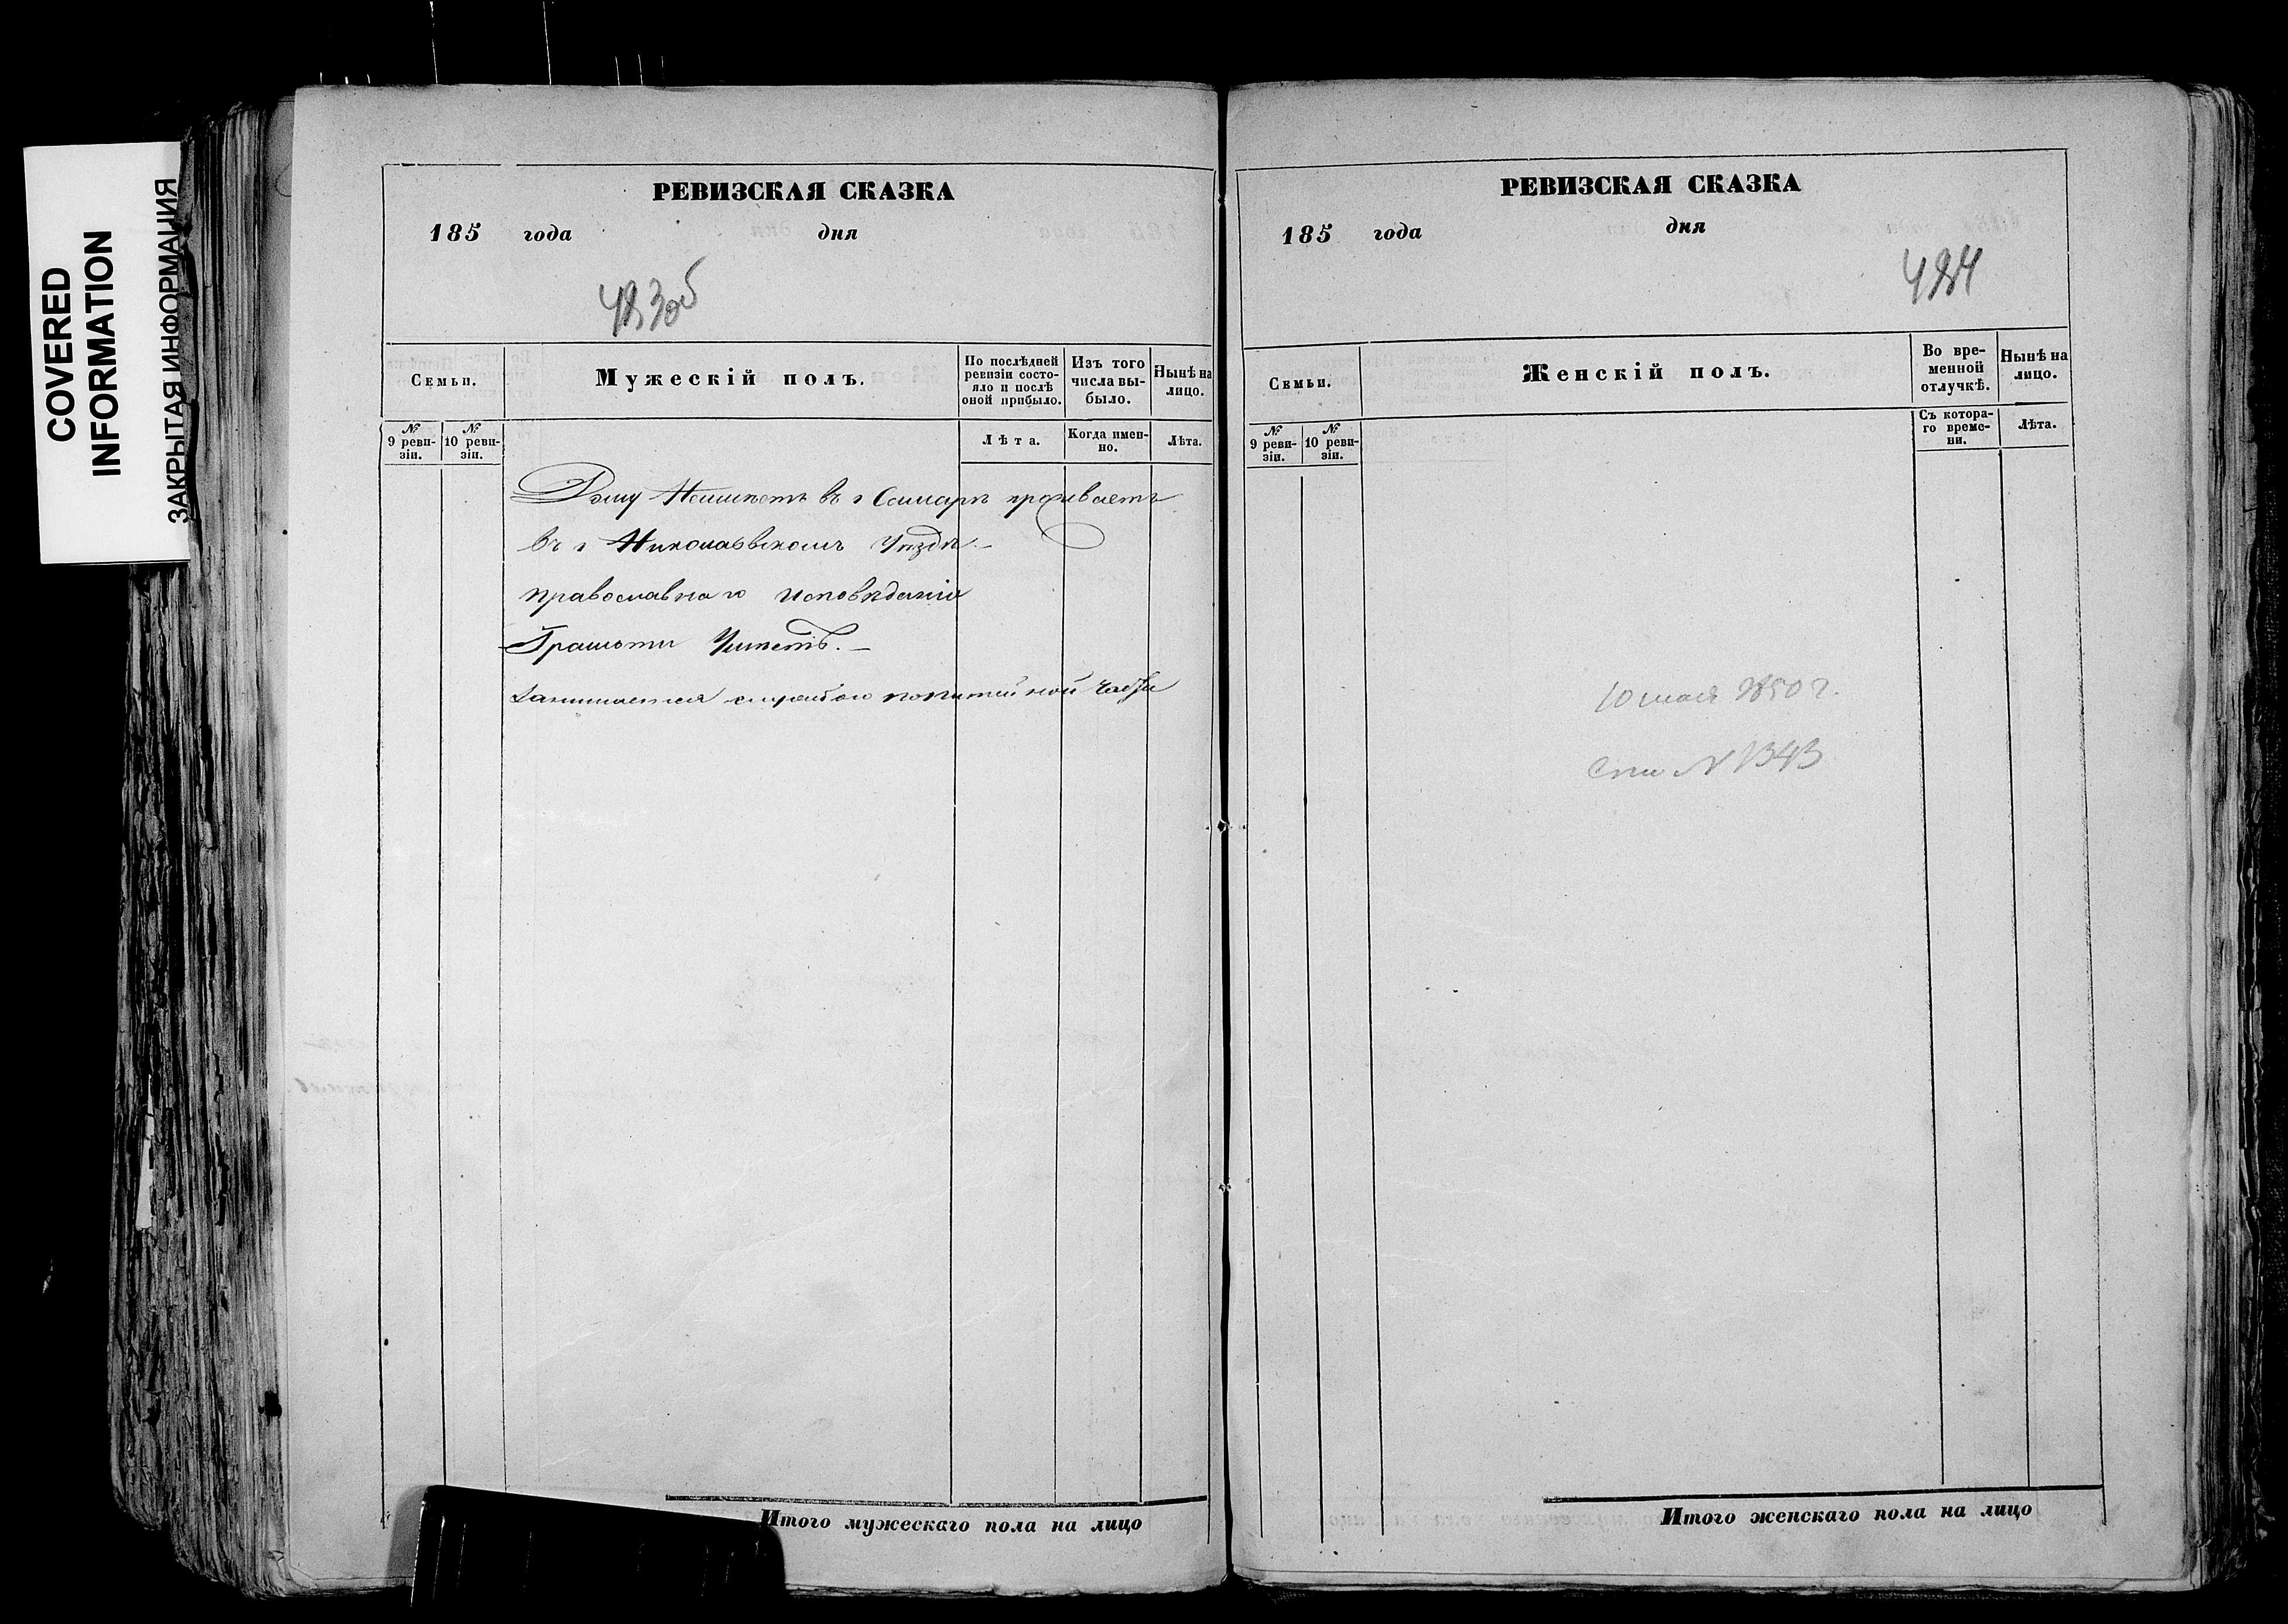 COVERED
INFORMATION
ЗАКРЫТАЯ ИНФОРМАЦИЯ
РЕВИЗСКАЯ СКАЗКА
185 года дня
483об
Семьи.
Мужескій полъ.
По послѣдней
ревизіи состо-
яло и послѣ
оной прибыло.
Изъ того
числа вы-
было.
Нынѣ на
лицо.
№
9 реви-
зіи.
№
10 реви-
зіи.
Лѣта.
Когда имен-
но.
Лѣта.
Дому Неимѣетъ въ г Самарѣ проживаетъ
въ г Николаевскомъ Уѣздѣ.
православнаго исповѣданія
Грамоти Умѣетъ.
Занимается службою попитейной части
Итого мужескаго пола на лицо
РЕВИЗСКАЯ СКАЗКА
185 года дня
484
Семьи.
Женскій полъ.
Во вре-
менной
отлучкѣ.
Нынѣ на
лицо.
№
9 реви-
зіи.
№
10 реви-
зіи.
Съ котора-
го време-
ни.
Лѣта.
10 мая 1850 г.
N 1343
Итого женскаго пола на лицо